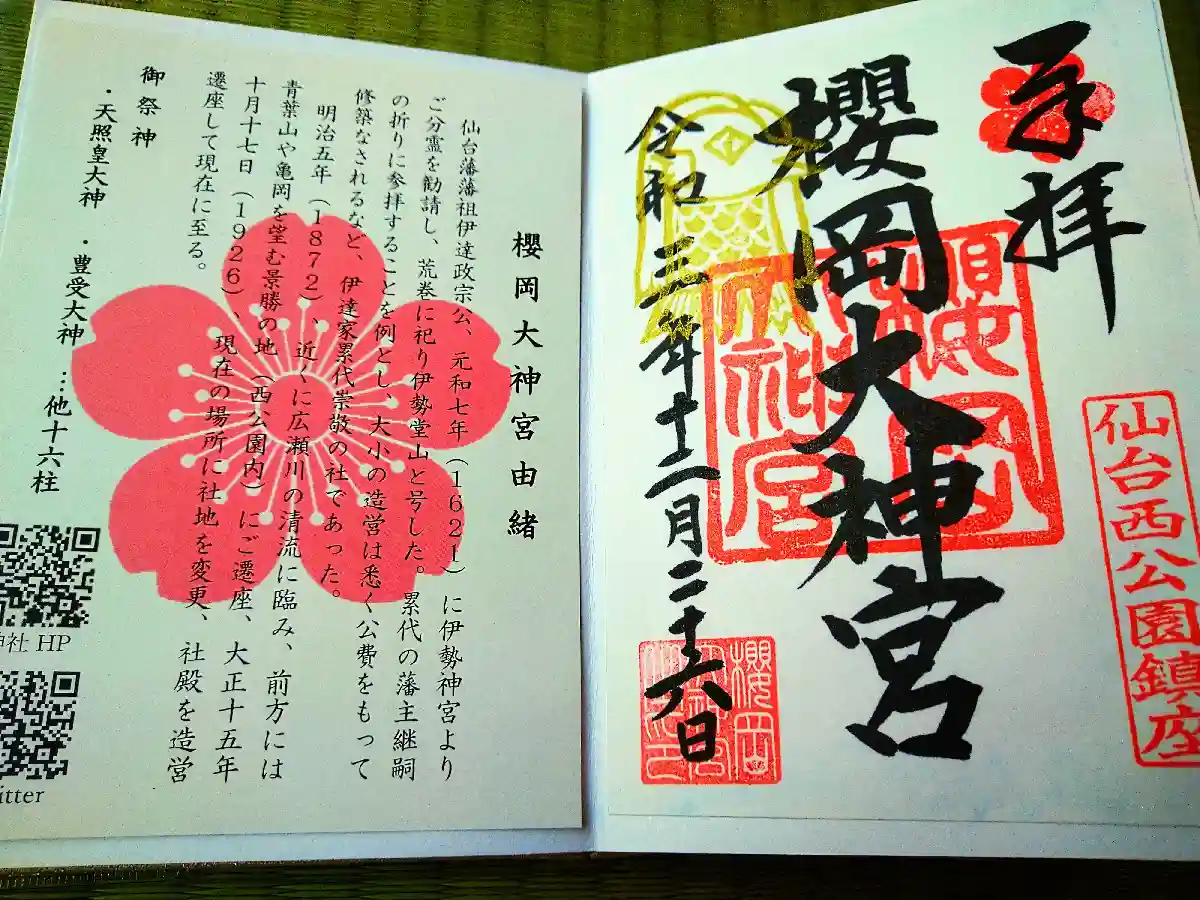 奉拝
櫻岡大神宮
令和三年十二月二十六日
仙台西公園鎮座
櫻岡大神宮由緒
仙台藩藩祖伊達政宗公、元和七年（1621）に伊勢神宮より
ご分霊を勧請し、荒巻に祀り伊勢堂山と号した。累代の藩主継嗣
の折りに参拝することを例とし、大小の造営は悉く公費をもって
修築なされるなど、伊達家累代崇敬の社であった。
明治五年（1872）、近くに広瀬川の清流に臨み、前方には
青葉山や亀岡を望む景勝の地（西公園内）にご遷座、大正十五年
十月十七日（1926）、現在の場所に社地を変更、社殿を造営
遷座して現在に至る。
御祭神
・天照皇大神　・豊受大神　…他十六柱
神社 HP
itter